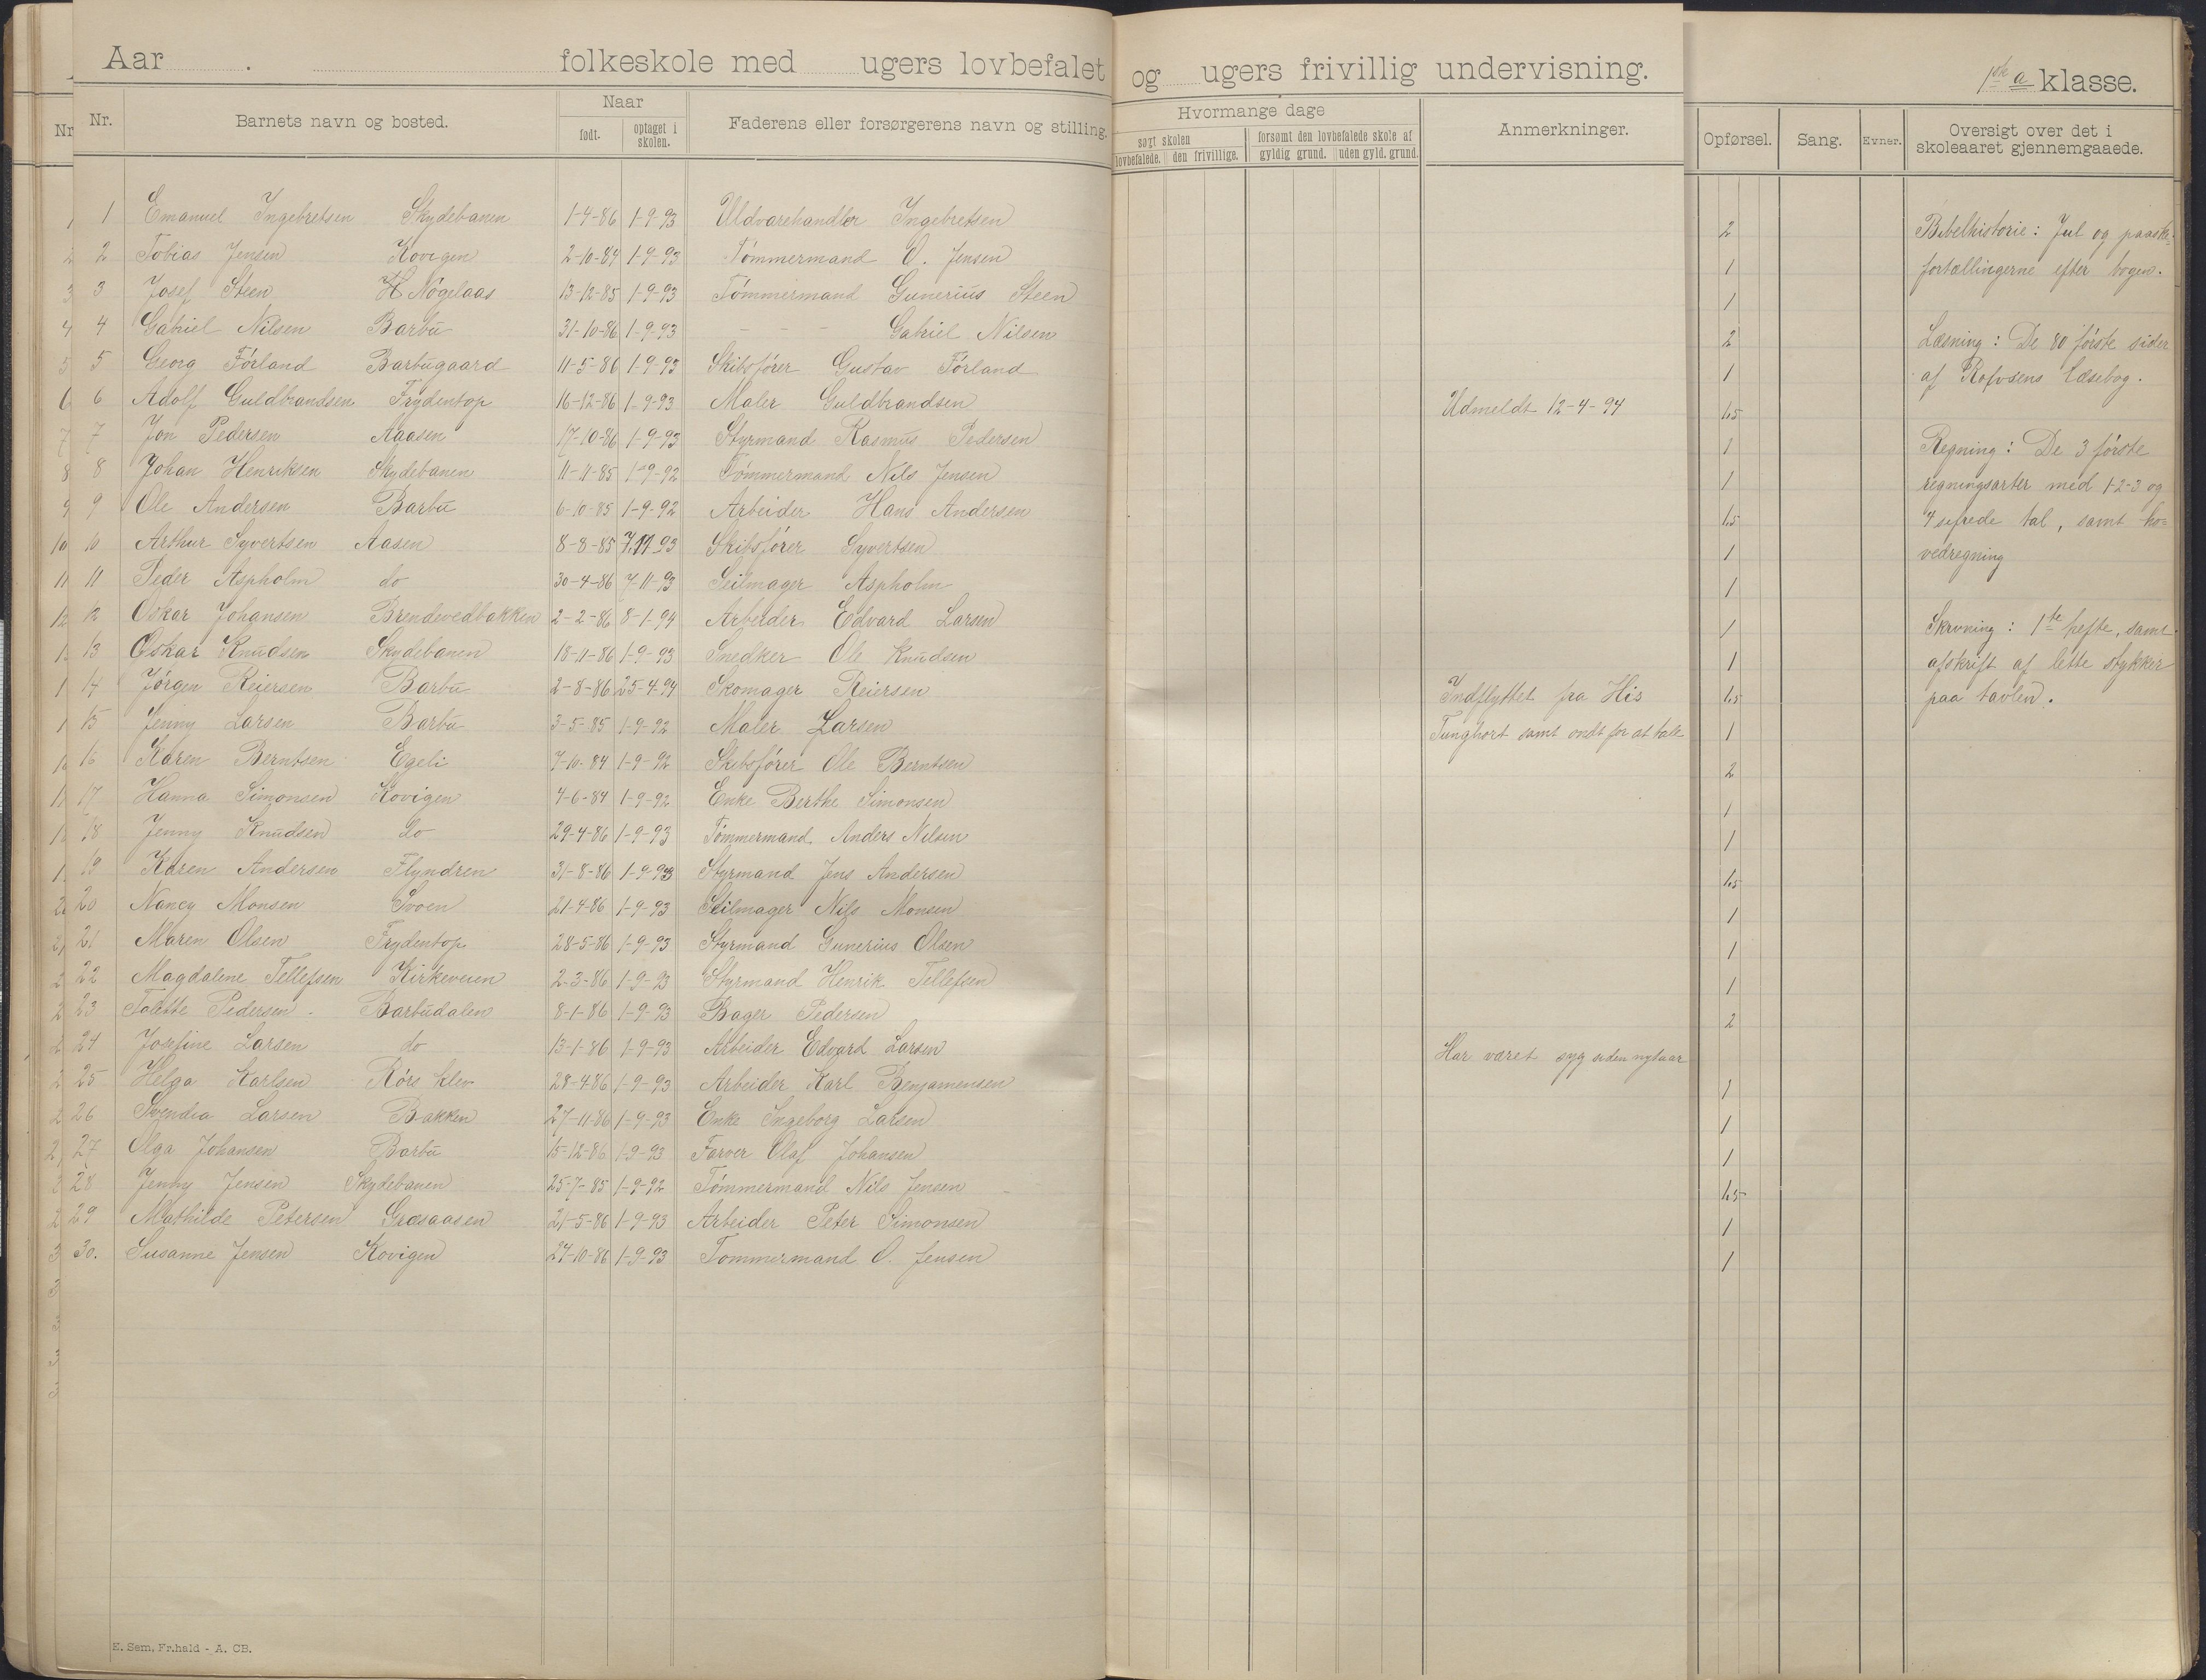 Aar . folkeskole med ugers lovbefalet og ugers frivillig undervisning. 1ste a klasse.
Nr. Barnets navn og bosted. Naar født. optaget i skolen. Faderens eller forsørgerens navn og stilling. Hvormange dage søgt skolen lovbefalede. den frivillige. forsømt den lovbefalede skole af gyldig grund. uden gyld. grund. Anmerkninger. Opførsel. Sang. Evner. Oversigt over det i skoleaaret gjennemgaaede.
1 Emanuel Ingebretsen Skydebanen 1-4-86 1-9-93 Uldvarehandler Ingebretsen 2
2 Tobias Jensen Kovigen 2-10-84 1-9-93 Tømmermand O. Jensen 1
3 Josef Steen H Nøgelaas 13-12-85 1-9-93 Tømmermand Gunerius Steen 1
4 Gabriel Nilsen Barbu 31-10-86 1-9-93 - - - Gabriel Nilsen 2
5 Georg Førland Barbugaard 11-5-86 1-9-93 Skibsfører Gustav Førland 1
6 Adolf Guldbrandsen Frydentop 16-12-86 1-9-93 Maler Guldbrandsen Udmeldt 12-4-94 1.5
7 Jon Pedersen Aaasen 17-10-86 1-9-93 Styrmand Rasmus Pedersen 1
8 Johan Henriksen Skydebanen 11-11-85 1-9-92 Tømmermand Nils Jensen 1
9 Ole Andersen Barbu 6-10-85 1-9-92 Arbeider Hans Andersen 1.5
10 Arthur Syvertsen Aasen 8-8-85 7.11-93 Skibsfører Syvertsen 1
11 Peder Aspholm do 30-4-86 7-11-93 Seilmager Aspholm 1
12 Oskar Johansen Brendevedbakken 2-2-86 8-1-94 Arbeider Edvard Larsen 1
13 Oskar Knudsen Skydebanen 18-11-86 1-9-93 Snedker Ole Knudsen 1
14 Jørgen Reiersen Barbu 2-8-86 25-4-94 Skomager Reiersen Indflyttet fra His 1.5
15 Jenny Larsen Barbu 3-5-85 1-9-92 Maler Larsen Tunghørt samt ondt for at tale 1
16 Karen Berntsen Egeli 7-10-84 1-9-92 Skibsfører Ole Berntsen 2
17 Hanna Simonsen Kovigen 4-6-84 1-9-92 Enke Berthe Simonsen 1
18 Jenny Knudsen do 29-4-86 1-9-93 Tømmermand Anders Nilsen 1
19 Karen Andersen Flyndren 31-8-86 1-9-93 Styrmand Jens Andersen 1.5
20 Nancy Monsen Svoen 21-4-86 1-9-93 Seilmager Nils Monsen 1
21 Maren Olsen Frydentop 28-5-86 1-9-93 Styrmand Gunerius Olsen 1
22 Magdalene Tellefsen Kirkeveien 2-3-86 1-9-93 Styrmand Henrik Tellefsen 1
23 Talette Pedersen Barbudalen 8-1-86 1-9-93 Bager Pedersen 2
24 Josefine Larsen do 13-1-86 1-9-93 Arbeider Edvard Larsen Har været syg siden nytaar
25 Helga Karlsen Rørs klev 28-4-86 1-9-93 Arbeider Karl Benjamensen 1
26 Svendea Larsen Bakken 27-11-86 1-9-93 Enke Ingeborg Larsen 1
27 Olga Johansen Barbu 15-12-86 1-9-93 Farver Olaf Johansen 1
28 Jenny Jensen Skydebanen 25-7-85 1-9-92 Tømmermand Nils Jensen 1.5
29 Mathilde Petersen Græsaasen 21-5-86 1-9-93 Arbeider Peter Simonsen 1
30. Susanne Jensen Kovigen 24-10-86 1-9-93 Tømmermand O. Jensen 1
Bibelhistorie: Jul og paaske-
fortællingerne efter bogen.
Læsning: De 80 første sider
af Rolfsens læsebog.
Regning: De 3 første
regningsarter med 1-2-3 og
4 sifrede tal, samt ho=
vedregning
Skrivning: 1ste hefte, samt
afskrift af lette stykker
paa tavlen.
E. Sem, Fr.hald - A. CB.